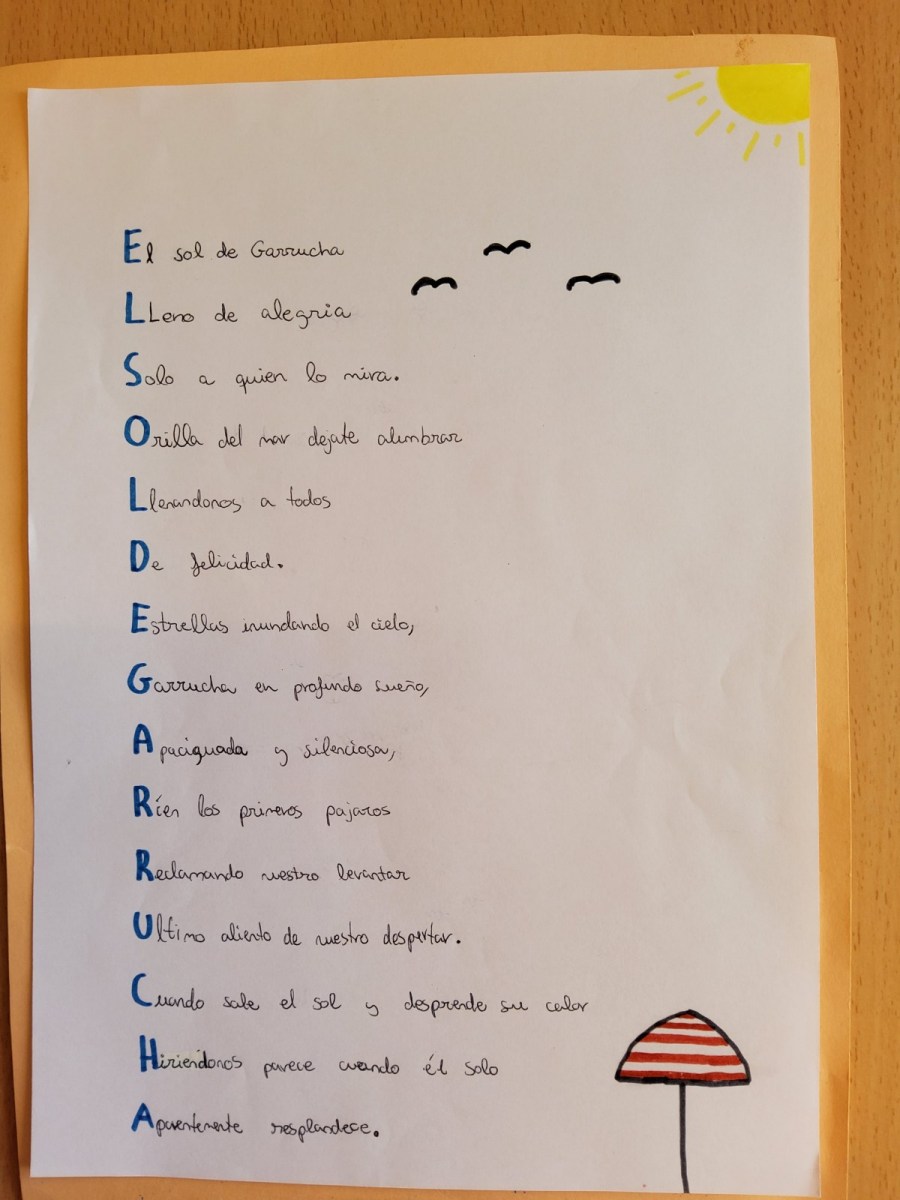 El sol de Garrucha
LLeno de alegria
Solo a quien lo mira.
Orilla del mar dejate alumbrar
Llenandonos a todos
De felicidad.
Estrellas inundando el cielo,
Garrucha en profundo sueño,
Apaciguada y silenciosa,
Ríen los primeros pajaros
Reclamando nuestro levantar
Ultimo aliento de nuestro despertar.
Cuando sale el sol y desprende su calor
Hiriendonos parece cuando él solo
Aparentemente resplandece.